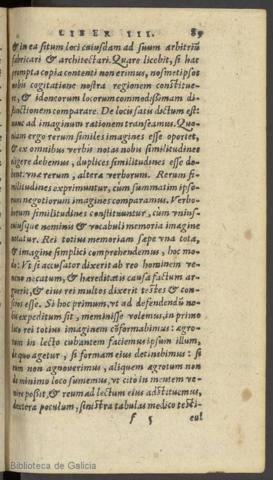 LIBER III. 89
& in ea situm loci cuiusdam ad suum arbitriũ
fabricari & architectari. Quare licebit, si hac
rumpta copia contenti non erimus, nosmetipsos
nobis cogitatione nostra regionem constitue-
re, & idoneorum locorum commodissimam di-
stinctionem comparare. De locis satis dictum est:
nunc ad imaginum rationem transeamus. Quo-
niam ergo rerum similes imagines esse oportet,
& ex omnibus verbis notas nobis similitudines
eligere debemus, duplices similitudines esse de-
bent: vna rerum, altera verborum. Rerum si-
militudines exprimuntur, cum summatim ipso-
rum negotiorum imagines comparamus. Verbo-
rum similitudines constituuntur, cum vnius-
cuiusque nominis & vocabuli memoria imagine
notatur. Rei totius memoriam sæpe vna nota,
& imagine simplici comprehendemus, hoc mo-
do: Vt si accusator dixerit ab reo hominem ve-
neno necatum, & hereditatis causa factum ar-
guerit, & eius rei multos dixerit testes & con-
scios esse. Si hoc primum, vt ad defendendũ no-
bis expeditum sit, meminisse volemus, in primo
loco rei totius imaginem cõformabimus: ægro-
tum in lecto cubantem faciemus ipsum illum,
de quo agetur, si formam eius detinebimus: si
eum non agnouerimus, aliquem ægrotum non
de minimo loco sumemus, vt cito in mentem ve-
nire possit, & reum ad lectum eius adstituemus,
dextera poculum, sinistra tabulas medico testi-
f 5 cul
Biblioteca de Galicia